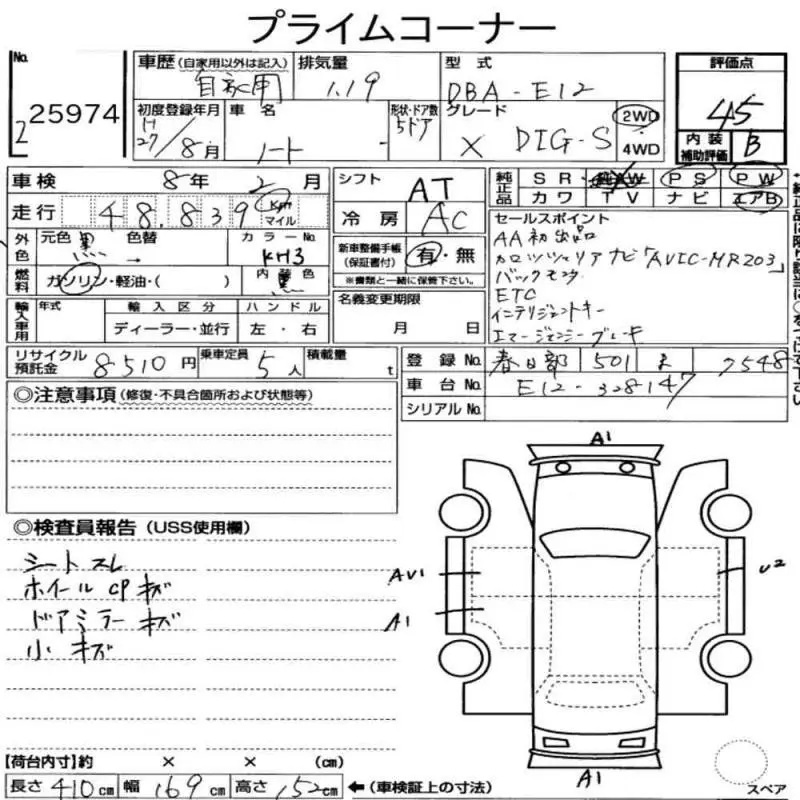 プライムコーナー
No. 2 25974
車歴 (自家用以外は記入) 自家用
排気量 1.19
型式 DBA-E12
評価点 45
内装補助評価 B
初度登録年月 H27/8月
車名 ノート
形状・ドア数 5ドア
グレード X DIG-S
2WD
4WD
車検 8年 2月
シフト AT
走行 48,839 Km マイル
冷房 AC
純正品 SR AW PS PW
カワ TV ナビ エアB
外色 元色 黒 色替 → カラーNo. KH3
新車整備手帳 (保証書付) 有・無
※書類と一緒に保管下さい。
燃料 ガソリン・軽油・( )
内装色 黒
名義変更期限 月 日
セールスポイント
AA初出品
カロッツェリアナビ「AVIC-MR203」
バックモニタ
ETC
インテリジェントキー
エマージェンシーブレーキ
輸入車用 年式 輸入区分 ハンドル
ディーラー・並行 左・右
リサイクル預託金 8510円
乗車定員 5人
積載量 t
登録No. 春日部 501 ま 7548
車台No. E12-328147
シリアルNo.
◎注意事項 (修復・不具合箇所および状態等)
◎検査員報告 (USS使用欄)
シートスレ
ホイールCPキズ
ドアミラーキズ
小キズ
A1
AU1
A1
U2
A1
スペア
【荷台内寸】約 × × (cm)
長さ 410cm 幅 169cm 高さ 152cm ←(車検証上の寸法)